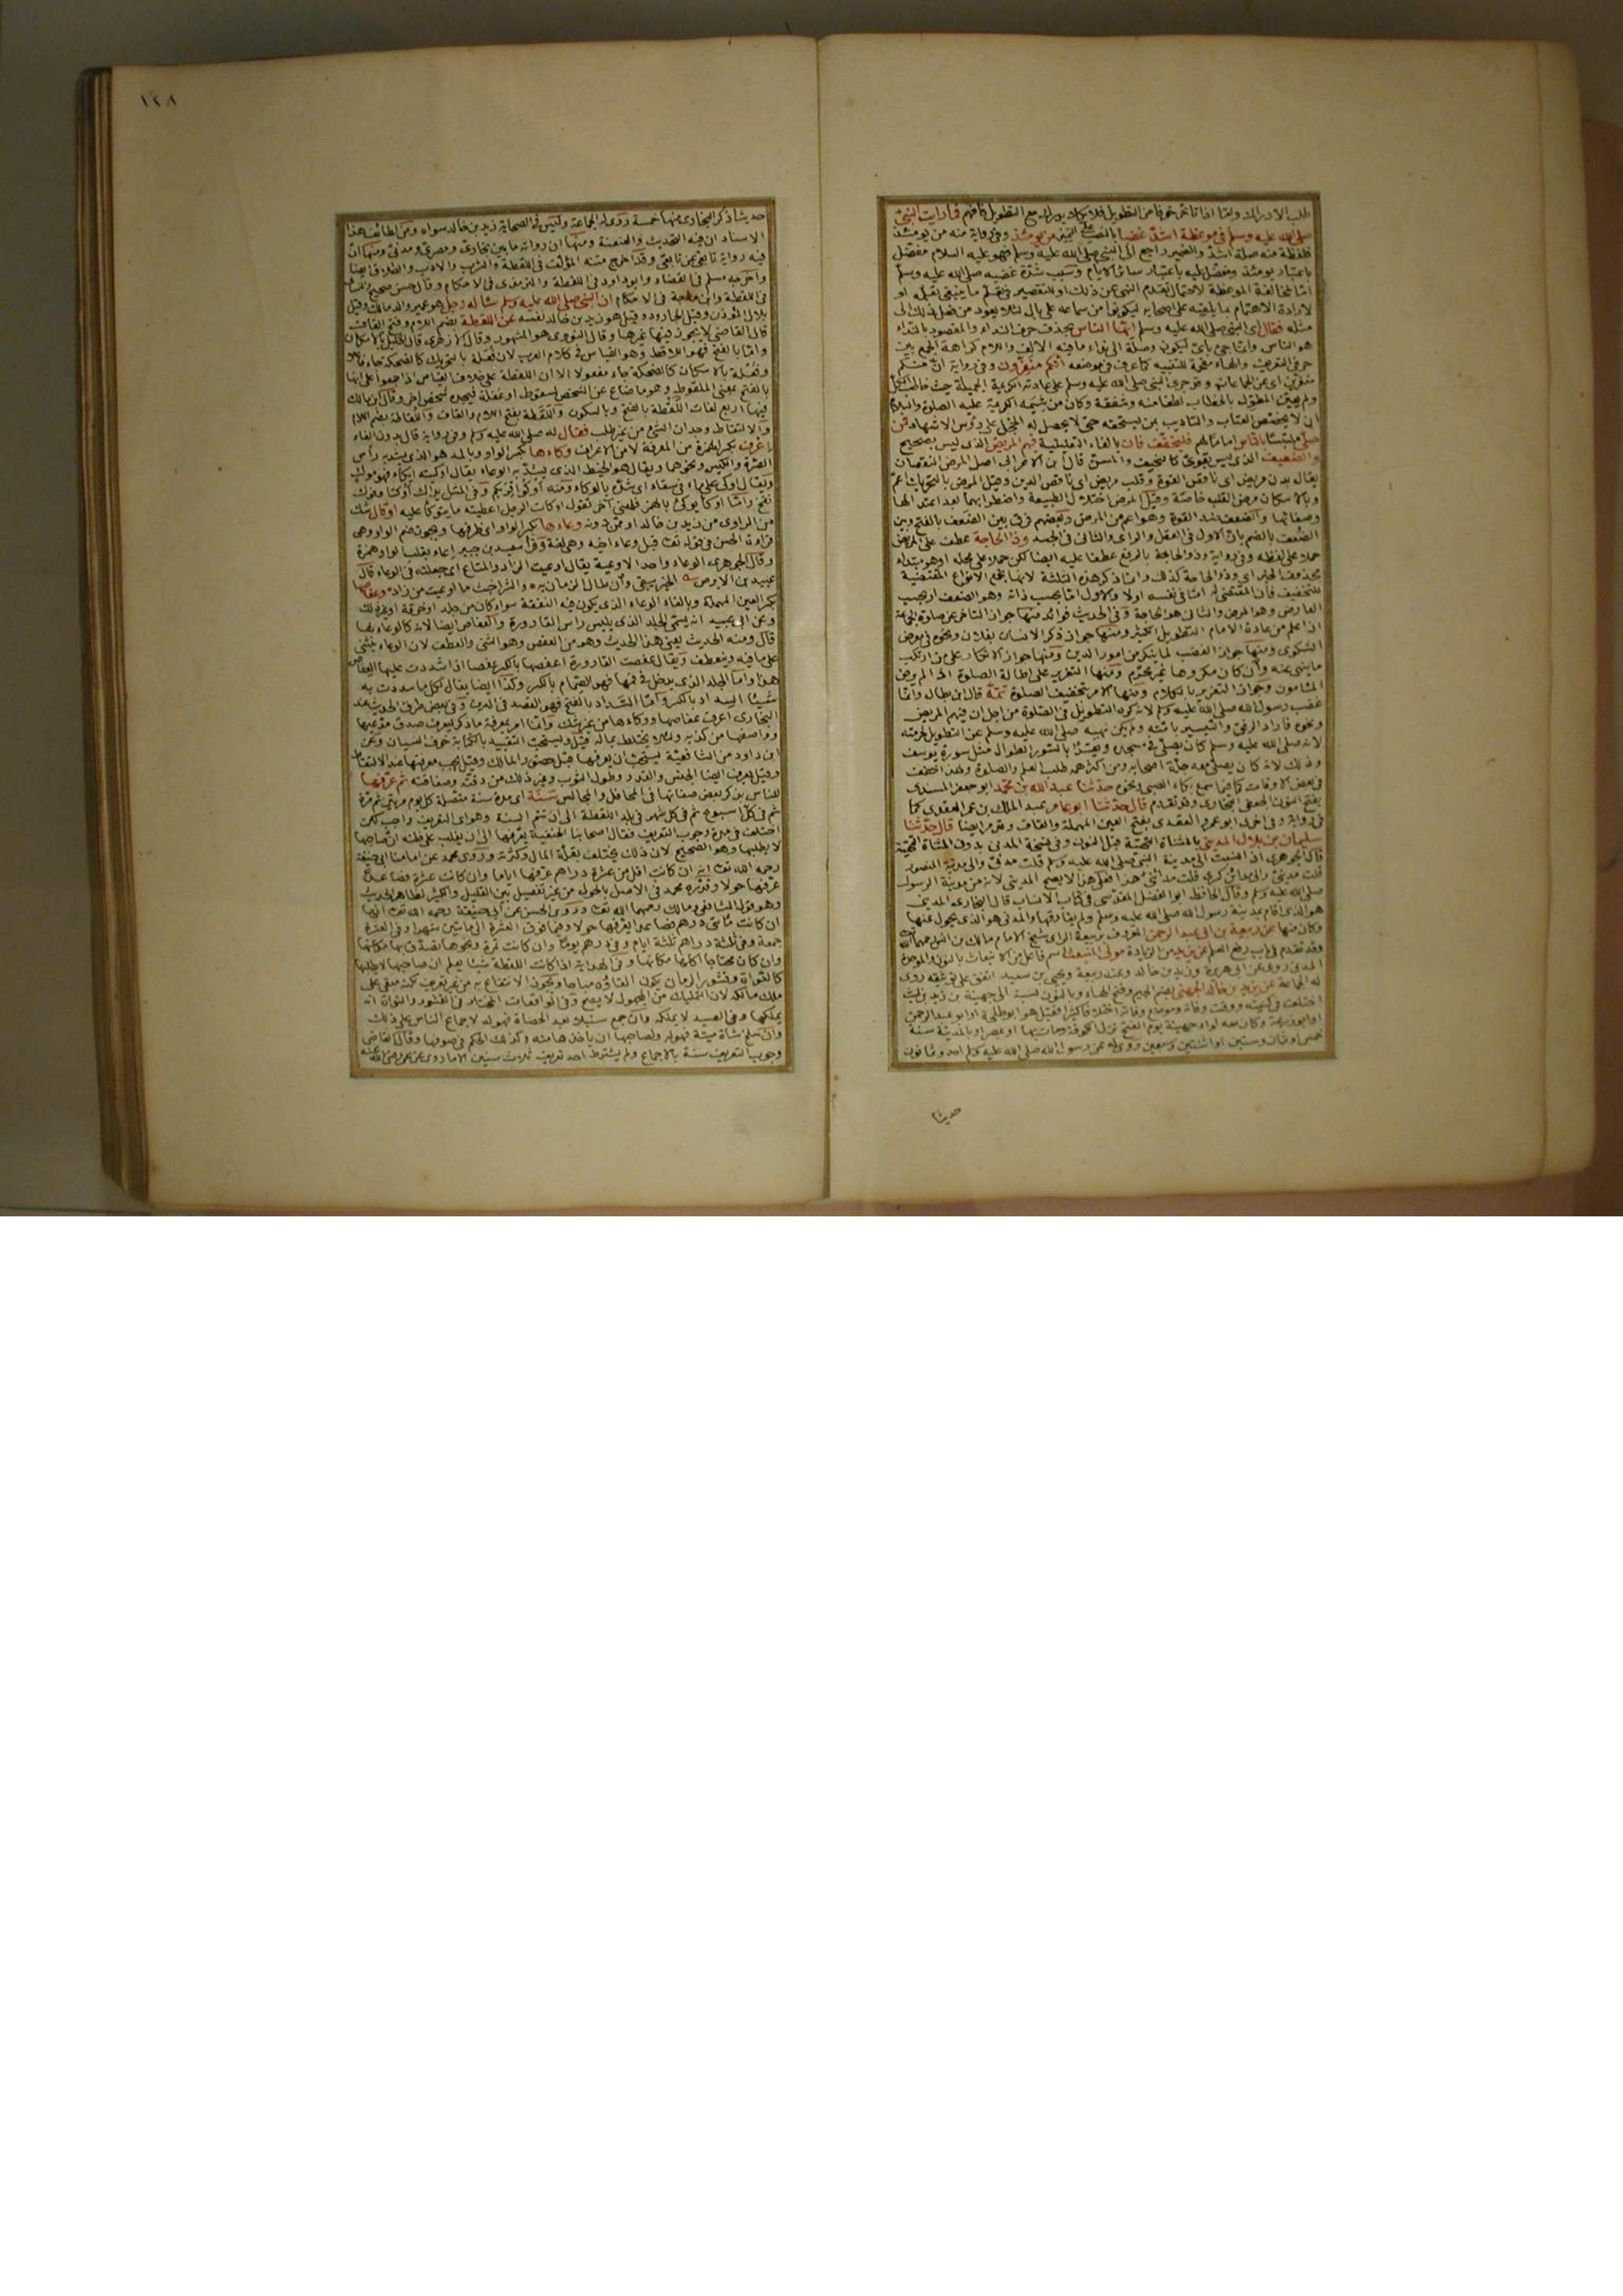 طلب الادراك وانما اذا تأخر خوفا من التطويل فلا يكاد يدرك مع التطويل فافهم فما رأيت النبي
صلى الله عليه وسلم في موعظة اشد غضبا بالنصب على التمييز من يومئذ وفي رواية منه من يومئذ
فلفظة منه صلة اشد والضمير راجع الى النبي صلى الله عليه وسلم فهو عليه السلام مفضل
باعتبار يومئذ ومفضل عليه باعتبار سائر الايام وسبب شدة غضبه صلى الله عليه وسلم
اما لمخالفة الموعظة لاحتمال تقدم النهي عن ذلك او للتقصير في تعلم ما ينبغي تعلمه او
لارادة الاهتمام بما يلقيه على اصحابه ليكونوا من سماعه على بال لئلا يعود من فعل ذلك الى
مثله فقال اي النبي صلى الله عليه وسلم ايها الناس بحذف حرف النداء والمقصود بالنداء
هو الناس وانما جئ باي ليكون وصلة الى نداء ما فيه الالف واللام كراهة الجمع بين
حرفي التعريف والهاء مقحمة للتنبيه كما عرف في موضعه انكم منفرون وفي رواية ان منكم
منفرين اي عن الجماعات وقد جرى النبي صلى الله عليه وسلم على عادته الكريمة الجميلة حيث خاطب الكل
ولم يعين المطول بالخطاب لطفا منه وشفقة وكان من شيمه الكريمة عليه الصلوة والسلام
ان لا يخصص العتاب والتاديب بمن يستحقه حتى لا يحصل له الخجل على رؤس الاشهاد فمن
صلى ملتبسا بالناس اماما لهم فليخفف فان بالفاء التعليلية فيهم المريض الذي ليس بصحيح
والضعيف الذي ليس بقوي كالنحيف والمسن قال ابن الاعرابي اصل المرض النقصان
يقال بدن مريض اي ناقص القوة وقلب مريض اي ناقص الدين وقيل المرض بالتحريك اعم
وبالاسكان مرض القلب خاصة وقيل المرض اختلال الطبيعة واضطرابها بعد اعتدالها
وصفائها والضعف ضد القوة وهو اعم من المرض وبعضهم فرق بين الضعف بالفتح وبين
الضعف بالضم بان الاول في العقل والراي والثاني في الجسد وذا الحاجة عطف على المريض
حملا على لفظه وفي رواية وذو الحاجة بالرفع عطفا عليه ايضا لكن حملا على محله او هو مبتداء
محذوف الخبر اي وذو الحاجة كذلك وانما ذكر هذه الثلثة لانها تجمع الانواع المقتضية
للتخفيف فان المقتضي له اما في نفسه اولا والاول اما بحسب ذاته وهو الضعف او بحسب
العارض وهو المرض والثاني هو الحاجة وفي الحديث فوائد منها جواز التاخر عن صلوة الجماعة
اذا علم من عادة الامام التطويل الكثير ومنها جواز ذكر الانسان بفلان ونحوه في معرض
الشكوى ومنها جواز الغضب لما ينكر من امور الدين ومنها جواز الانكار على من ارتكب
ما ينهى عنه وان كان مكروها غير محرم ومنها التعزير على اطالة الصلوة اذا لم يرض
المأمون وجواز التعزير بالكلام ومنها الامر بتخفيف الصلوة تتمة قال ابن بطال وانما
غضب رسول الله صلى الله عليه وسلم لانه كره التطويل في الصلوة من اجل ان فيهم المريض
ونحوه فاراد الرفق والتيسير بامته ولم يكن نهيه صلى الله عليه وسلم عن التطويل لحرمته
لانه صلى الله عليه وسلم كان يصلي في مسجده ويقرأ بالسور الطوال مثل سورة يوسف
وذلك لانه كان يصلي معه جلة اصحابه ومن اكثر همه طلب العلم والصلوة ولهذا خفف
في بعض الاوقات كما فيما سمع بكاء الصبي ونحوه حدثنا عبد الله بن محمد ابو جعفر المسندي
بفتح النون الجعفي البخاري وقد تقدم قال حدثنا ابو عامر عبد الملك بن عمرو العقدي كما
في رواية وفي اخرى ابو عمرو العقدي بفتح العين المهملة والقاف وقد مر ايضا قال حدثنا
سليمان بن بلال المديني بالمثناة التحتية قبل النون وفي نسخة المدني بدون المثناة التحتية
قال الجوهري اذا نسبت الى مدينة النبي صلى الله عليه وسلم قلت مدني والى مدينة المنصور
قلت مديني والى مدائن كسرى قلت مدائني هذا فعلى هذا لا يصح المديني لانه من مدينة الرسول
صلى الله عليه وسلم وقال الحافظ ابو الفضل المقدسي في كتاب الانساب قال البخاري المديني
هو الذي اقام بمدينة رسول الله صلى الله عليه وسلم ولم يفارقها والمدني هو الذي تحول عنها
وكان منها عن ربيعة بن ابي عبد الرحمن المعروف بربيعة الراي شيخ الامام مالك بن انس رحمهما الله
وقد تقدم في باب رفع العلم عن يزيد من الزيادة مولى المنبعث اسم فاعل من الانبعاث بالنون والموحدة
المدني روى عن ابي هريرة وزيد بن خالد وعنه ربيعة ويحيى بن سعيد اتفق على توثيقه روى
له الجماعة عن زيد بن خالد الجهني بضم الجيم وفتح الهاء وبالنون نسبة الى جهينة بن زيد بن ليث
اختلف في كنيته ووقت وفاته وموضع وفاته اختلافا كثيرا فقيل هو ابو طلحة او ابو عبد الرحمن
او ابو زرعة وكان معه لواء جهينة يوم الفتح نزل الكوفة ومات بها او بمصر او بالمدينة سنة
خمس او ثمان وستين او اثنتين وسبعين روي له عن رسول الله صلى الله عليه وسلم احد وثمانون
حديثا
١٢٨
حديثا ذكر البخاري منها خمسة روى له الجماعة وليس في الصحابة زيد بن خالد سواه ومن لطائف هذا
الاسناد ان فيه التحديث والعنعنة ومنها ان رواته ما بين بخاري وبصري ومدني ومنها ان
فيه رواية تابعي عن تابعي وقد اخرج متنه المؤلف في اللقطة والشرب والادب والطلاق ايضا
واخرجه مسلم في القضاء وابو داود في اللقطة والترمذي في الاحكام وقال حسن صحيح والنسائي
في اللقطة وابن ماجة في الاحكام ان النبي صلى الله عليه وسلم سأله رجل هو عمير والد مالك وقيل
بلال المؤذن وقيل الجارود وقيل هو زيد بن خالد نفسه عن اللقطة بضم اللام وفتح القاف
قال القاضي لا يجوز فيها غيرها وقال النووي هو المشهور وقال الازهري قال الخليل بالاسكان
واما بالفتح فهو اللاقط وهو القياس في كلام العرب لان فعلة بالتحريك كالضحكة جاء فاعلا
وفعلة بالاسكان كالضحكة جاء مفعولا الا ان اللقطة على خلاف القياس اذ اجمعوا على انها
بالفتح بمعنى الملقوط وهو ما ضاع عن الشخص بسقوط او غفلة فيجده شخص اخر وقال ابن مالك
فيها اربع لغات اللقطة بالفتح وبالسكون واللقطة بفتح اللام والقاف واللقاطة بضم اللام
والالتقاط وجدان الشئ من غير طلب فقال له صلى الله عليه وسلم وفي رواية قال بدون الفاء
اعرف بكسر الهمزة من المعرفة لا من الاعراف وكاءها بكسر الواو وبالمد هو الذي يشد به رأس
الصرة والكيس ونحوهما ويقال هو الخيط الذي يشد به الوعاء يقال اوكيته ايكاء فهو موكى
ويقال اوكى على ماء في سقاء اي شده بالوكاء ومنه اوكوا قربكم وفي المثل يداك اوكتا وفوك
نفخ واما اوكأ يوكئ بالهمز فلمعنى آخر تقول اوكأت الرجل اعطيته ما يتوكأ عليه او قال شك
من الراوي من زيد بن خالد او ممن دونه وعاءها بكسر الواو اي ظرفها ويجوز ضم الواو وهي
قراءة الحسن في قوله تعالى قبل وعاء اخيه وهي لغة وقرأ سعيد بن جبير اعاء بقلب الواو همزة
وقال الجوهري الوعاء واحد الاوعية يقال اوعيت الزاد والمتاع اي جعلته في الوعاء قال
عبيد بن الابرص الخير يبقى وان طال الزمان به والشر اخبث ما اوعيت من زاد وعفاصها
بكسر العين المهملة وبالفاء الوعاء الذي يكون فيه النفقة سواء كان من جلد او خرقة او غير ذلك
وعن ابي عبيد انه يسمى الجلد الذي يلبس راس القارورة والعفاص ايضا لانه كالوعاء لها
قال ومنه الحديث يعني هذا الحديث وهو من العفص وهو الثني والعطف لان الوعاء ينثني
على ما فيه وينعطف ويقال عفصت القارورة اعفصها بالكسر عفصا اذا شددت عليها العفاص
هذا واما الجلد الذي يدخل في فمها فهو الصمام بالكسر وكذا ايضا يقال لكل ما سددت به
شيئا السداد بالكسر واما السداد بالفتح فهو القصد في الدين وفي بعض طرق الحديث عند
البخاري اعرف عفاصها ووكاءها من غير شك وانما امر بمعرفة ما ذكر ليعرف صدق مدعيها
وواصفها من كذبه ولئلا يختلط بماله قيل ويستحب التقييد بالكتابة خوف النسيان وعن
ابن داود من الشافعية يستحب ان يعرفها قبل حضور المالك وقيل يجب معرفتها عند الالتقاط
وقيل يعرف ايضا الجنس والقدر وطول الثوب وغير ذلك من دقته وصفاقته ثم عرفها
للناس بذكر بعض صفاتها في المحافل والمجالس سنة اي مدة سنة متصلة كل يوم مرتين ثم مرة
ثم في كل اسبوع ثم في كل شهر في بلد اللقطة الى ان تتم السنة وهو اي التعريف واجب لكن
اختلف في مدة وجوب التعريف فقال اصحابنا الحنفية يعرفها الى ان يغلب على ظنه ان صاحبها
لا يطلبها وهو الصحيح لان ذلك يختلف بقلة المال وكثرته وروى محمد عن امامنا ابي حنيفة
رحمه الله تعالى انه ان كانت اقل من عشرة دراهم عرفها اياما وان كانت عشرة فصاعدا
عرفها حولا وقدره محمد في الاصل بالحول من غير تفصيل بين القليل والكثير لظاهر الحديث
وهو قول الشافعي ومالك رحمهما الله تعالى وروى الحسن عن ابي حنيفة رحمه الله تعالى انها
ان كانت مأتي درهم فصاعدا يعرفها حولا وفيما فوق العشرة الى مأتين شهرا وفي العشرة
جمعة وفي ثلثة دراهم ثلثة ايام وفي درهم يوما وان كانت تمرة ونحوها تصدق بها مكانها
وان كان محتاجا اكلها مكانها وفي الهداية اذا كانت اللقطة شيئا يعلم ان صاحبها لا يطلبها
كالنواة وقشور الرمان يكون القاؤه مباحا ويجوز الانتفاع به من غير تعريف لكنه مبقى على
ملك مالكه لان التمليك من المجهول لا يصح وفي الواقعات المختار في القشور والنواة انه
يملكها وفي الصيد لا يملكه وان جمع سنبلا بعد الحصاد فهو له لاجماع الناس على ذلك
وان سلخ شاة ميتة فهو له ولصاحبها ان يأخذها منه وكذلك الحكم في صوفها وقال القاضي
وجوب التعريف سنة بالاجماع ولم يشترط احد تعريف ثلاث سنين الا ما روي عن عمر رضي الله عنه